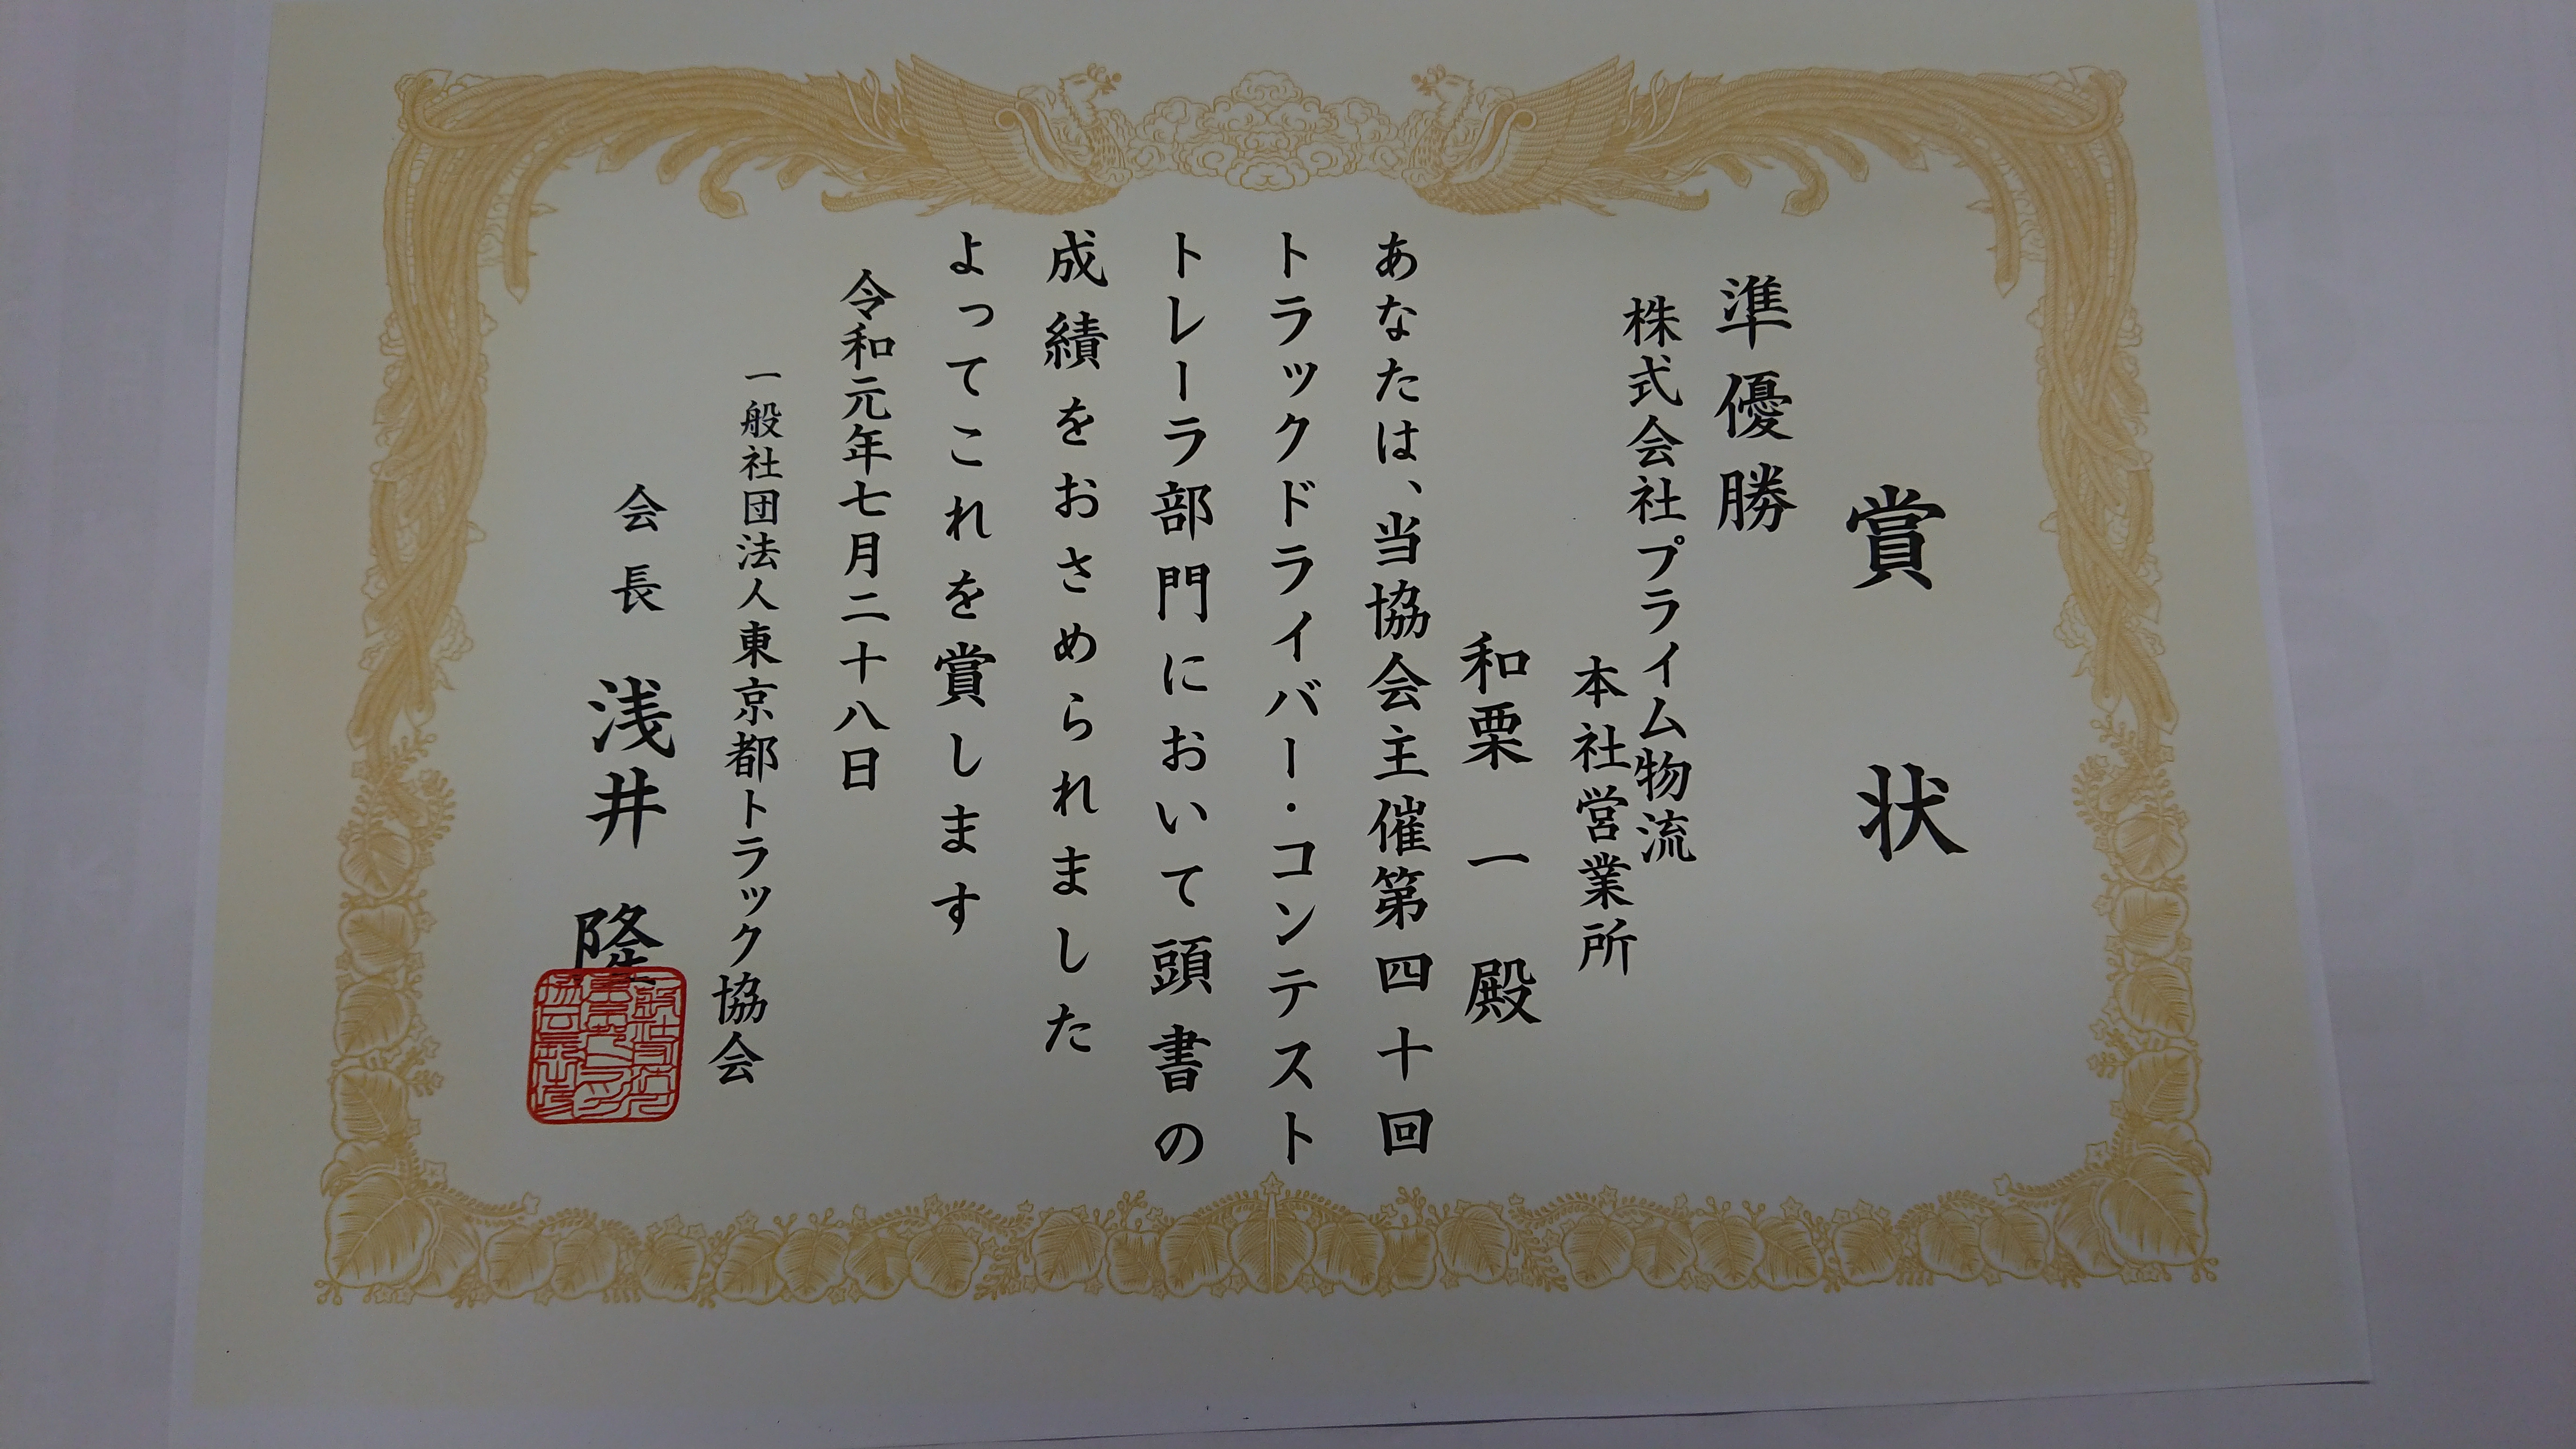 賞状
準優勝
株式会社プライム物流
本社営業所
和栗一殿
あなたは、当協会主催第四十回
トラックドライバー・コンテスト
トレーラ部門において頭書の
成績をおさめられました
よってこれを賞します
令和元年七月二十八日
一般社団法人東京都トラック協会
会長 浅井隆